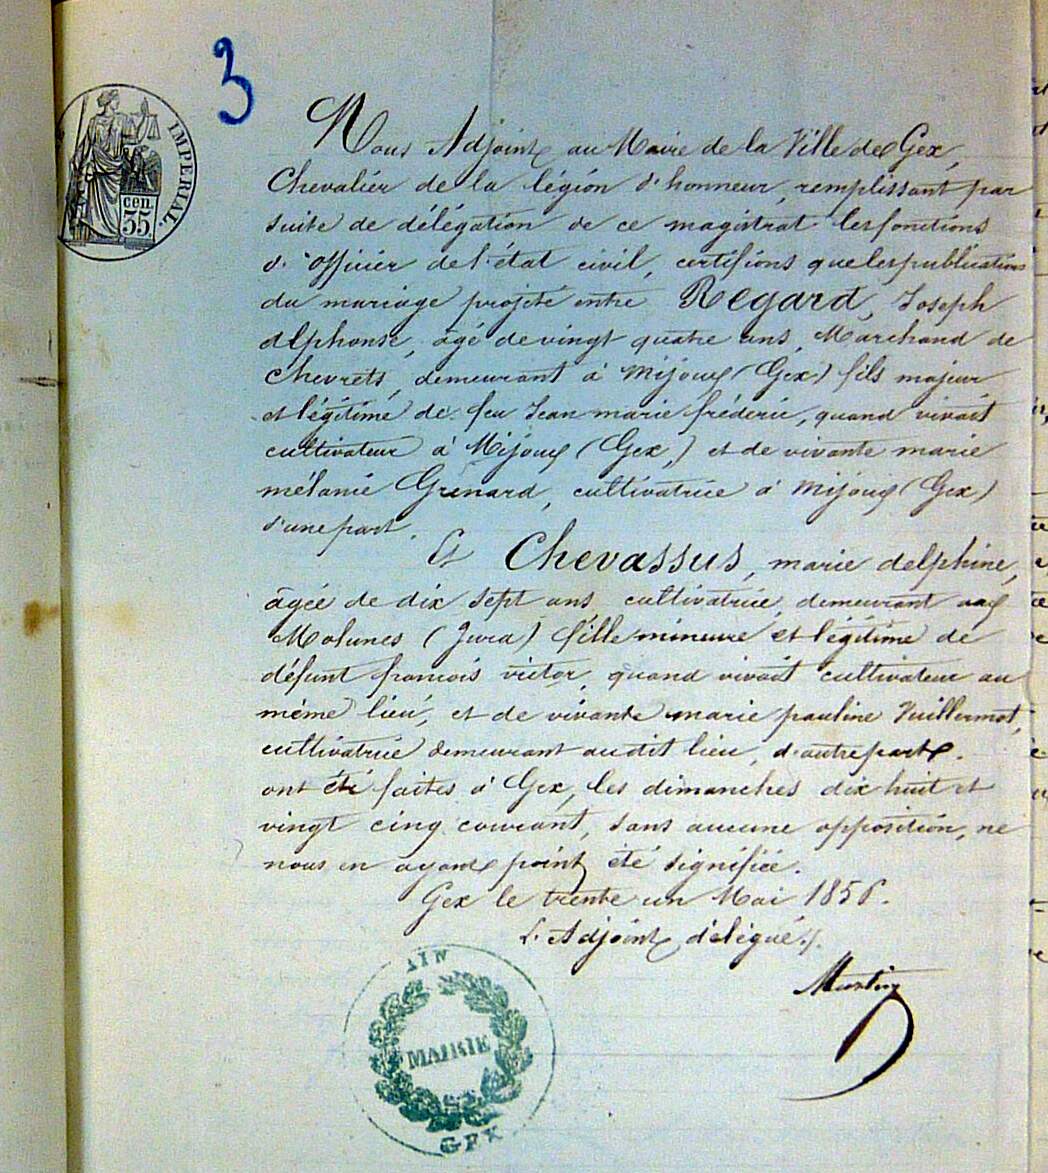 3
IMPERIAL.
cen.
35.
Nous Adjoint au Maire de la Ville de Gex,
Chevalier de la légion d'honneur, remplissant par
suite de délégation de ce magistrat les fonctions
d'officier de l'état civil, certifions que les publications
du mariage projeté entre Regard, Joseph
alphonse, âgé de vingt quatre ans, Marchand de
chevrets, demeurant à Mijoux (Gex) fils majeur
et légitime de feu Jean marie fréderic, quand vivait
cultivateur à Mijoux (Gex,) et de vivante marie
mélanie Grenard, cultivatrice à Mijoux (Gex)
d'une part.
Et Chevassus, marie delphine,
âgée de dix sept ans, cultivatrice, demeurant aux
Molunes (Jura) fille mineure et légitime de
défunt francois victor, quand vivait cultivateur au
même lieu, et de vivante marie pauline Vuillermot,
cultivatrice demeurant audit lieu, d'autre part.
ont été faites à Gex, les dimanches dix huit et
vingt cinq courant, sans aucune opposition, ne
nous en ayant point été signifiée.
Gex le trente un Mai 1856.
L'Adjoint délégué.
AIN
MAIRIE
GEX